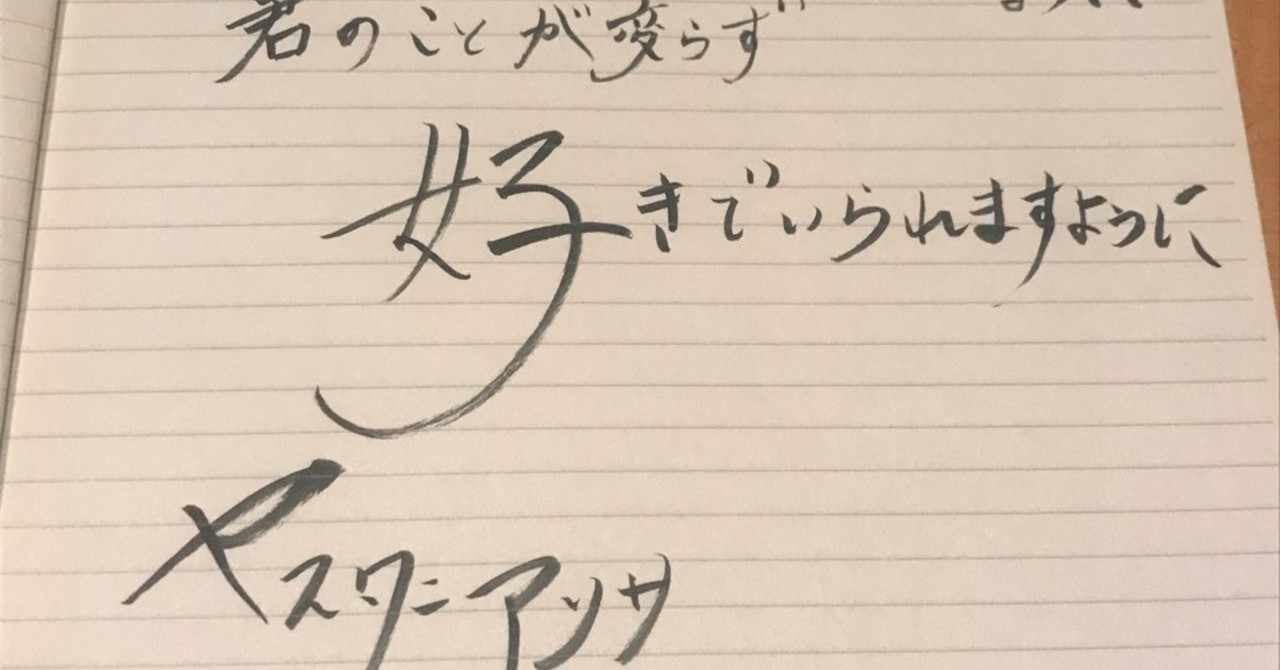 君のことが変らず
好きでいられますように
ヤスワニアソサ